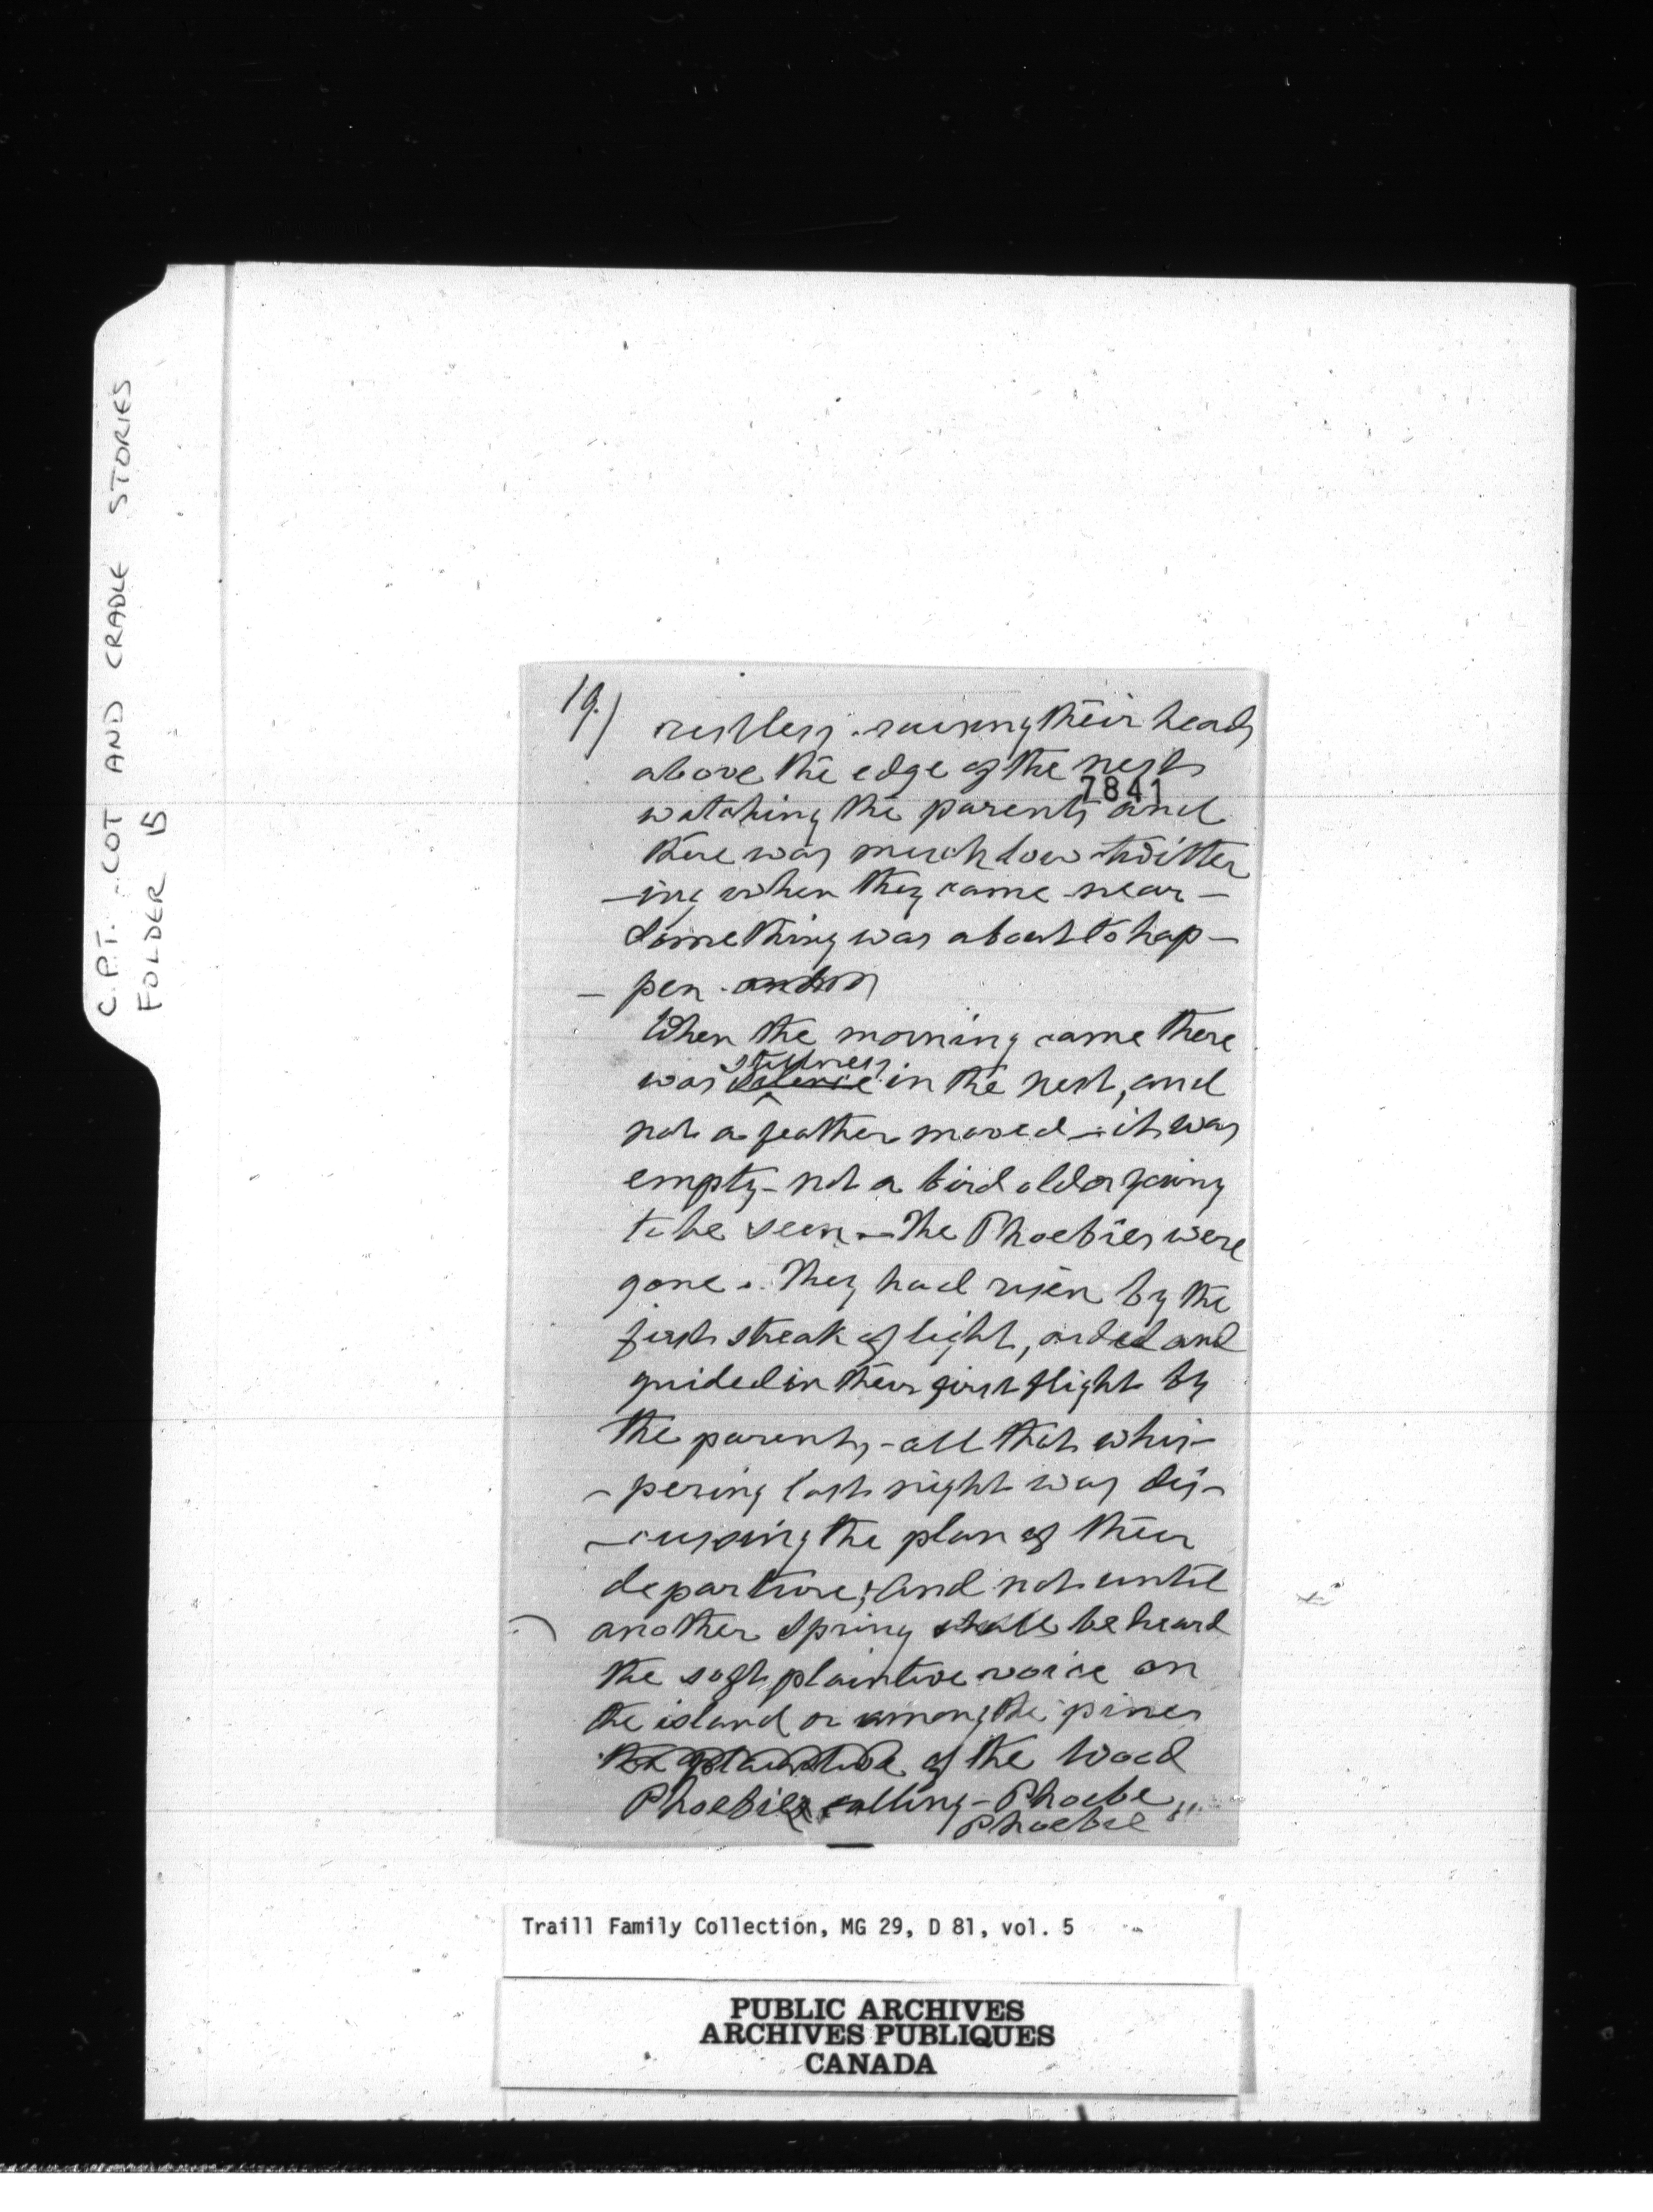 C.P.T. COT AND CRADLE STORIES
FOLDER 15
19.)
restless. raising their heads
above the edge of the nest
7841
watching the parents and
there was much low twitter
-ing when they came near -
Something was about to hap-
- pen.
When the morning came there
stillness
was silence in the nest, and
not a feather moved - it was
empty - not a bird old or young
to be seen - The Phoebies were
gone. They had risen by the
first streak of light, aided and
guided in their first flight by
the parents, - all that whis-
- pering last night was dis-
- cussing the plan of their
departure; and not until
another Spring shall be heard
the soft plaintive voice on
the island or among the pines
the plaintive of the Wood
Phoebies calling - Phoebe,
Phoebie"
Traill Family Collection, MG 29, D 81, vol. 5
PUBLIC ARCHIVES
ARCHIVES PUBLIQUES
CANADA